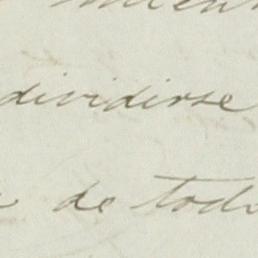 dividirse
de todo